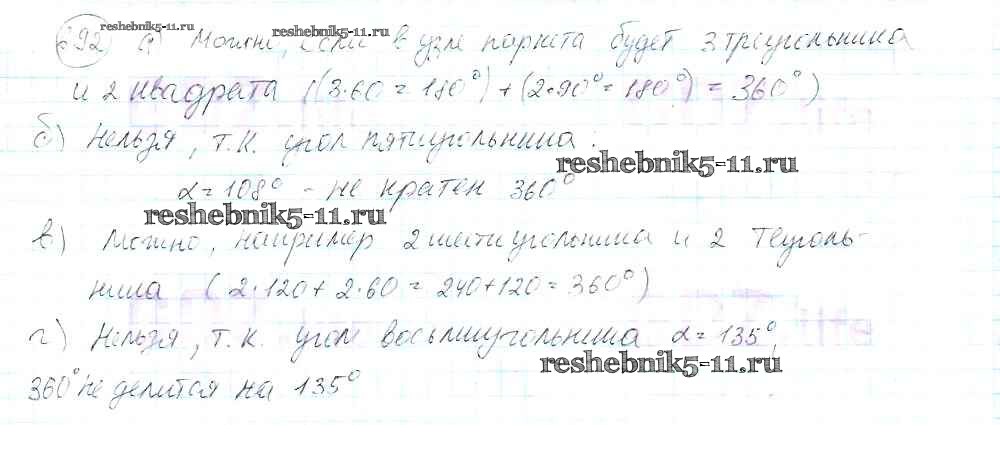 692 а) Можно, если в узле паркета будет 3 треугольника
и 2 квадрата ((3·60 = 180°) + (2·90° = 180°) = 360°)
б) Нельзя, т.к. угол пятиугольника:
α = 108° - не кратен 360°
в) Можно, например 2 шестиугольника и 2 теуголь-
ника (2·120 + 2·60 = 240 + 120 = 360°)
г) Нельзя, т.к. угол восьмиугольника α = 135°,
360° не делится на 135°
reshebnik5-11.ru
reshebnik5-11.ru
reshebnik5-11.ru
reshebnik5-11.ru
reshebnik5-11.ru